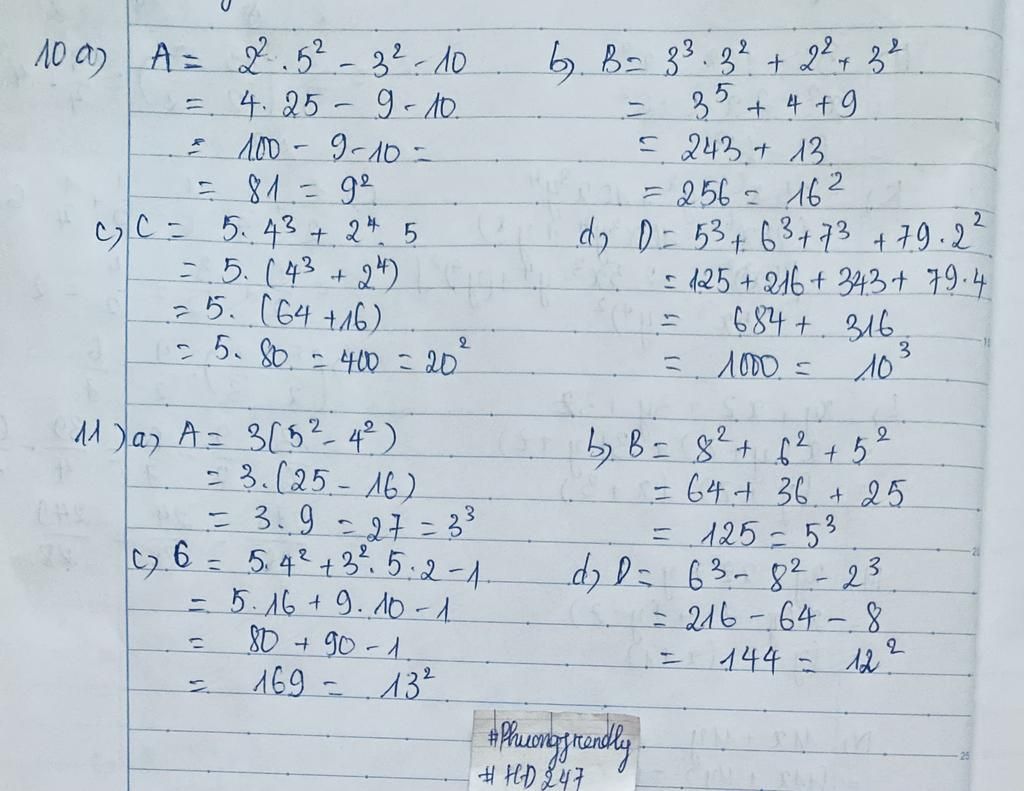 10 a) A = 2² . 5² - 3² - 10
= 4 . 25 - 9 - 10
= 100 - 9 - 10 =
= 81 = 9²
b) B = 3³ . 3² + 2² + 3²
= 3⁵ + 4 + 9
= 243 + 13
= 256 = 16²
c) C = 5 . 4³ + 2⁴ . 5
= 5 . (4³ + 2⁴)
= 5 . (64 + 16)
= 5 . 80 = 400 = 20²
d) D = 5³ + 6³ + 7³ + 79 . 2²
= 125 + 216 + 343 + 79 . 4
= 684 + 316
= 1000 = 10³
11) a) A = 3(5² - 4²)
= 3 . (25 - 16)
= 3 . 9 = 27 = 3³
b) B = 8² + 6² + 5²
= 64 + 36 + 25
= 125 = 5³
c) 6 = 5 . 4² + 3² . 5 . 2 - 1
= 5 . 16 + 9 . 10 - 1
= 80 + 90 - 1
= 169 = 13²
d) D = 6³ - 8² - 2³
= 216 - 64 - 8
= 144 = 12²
#Phuongfrendly
#HD247